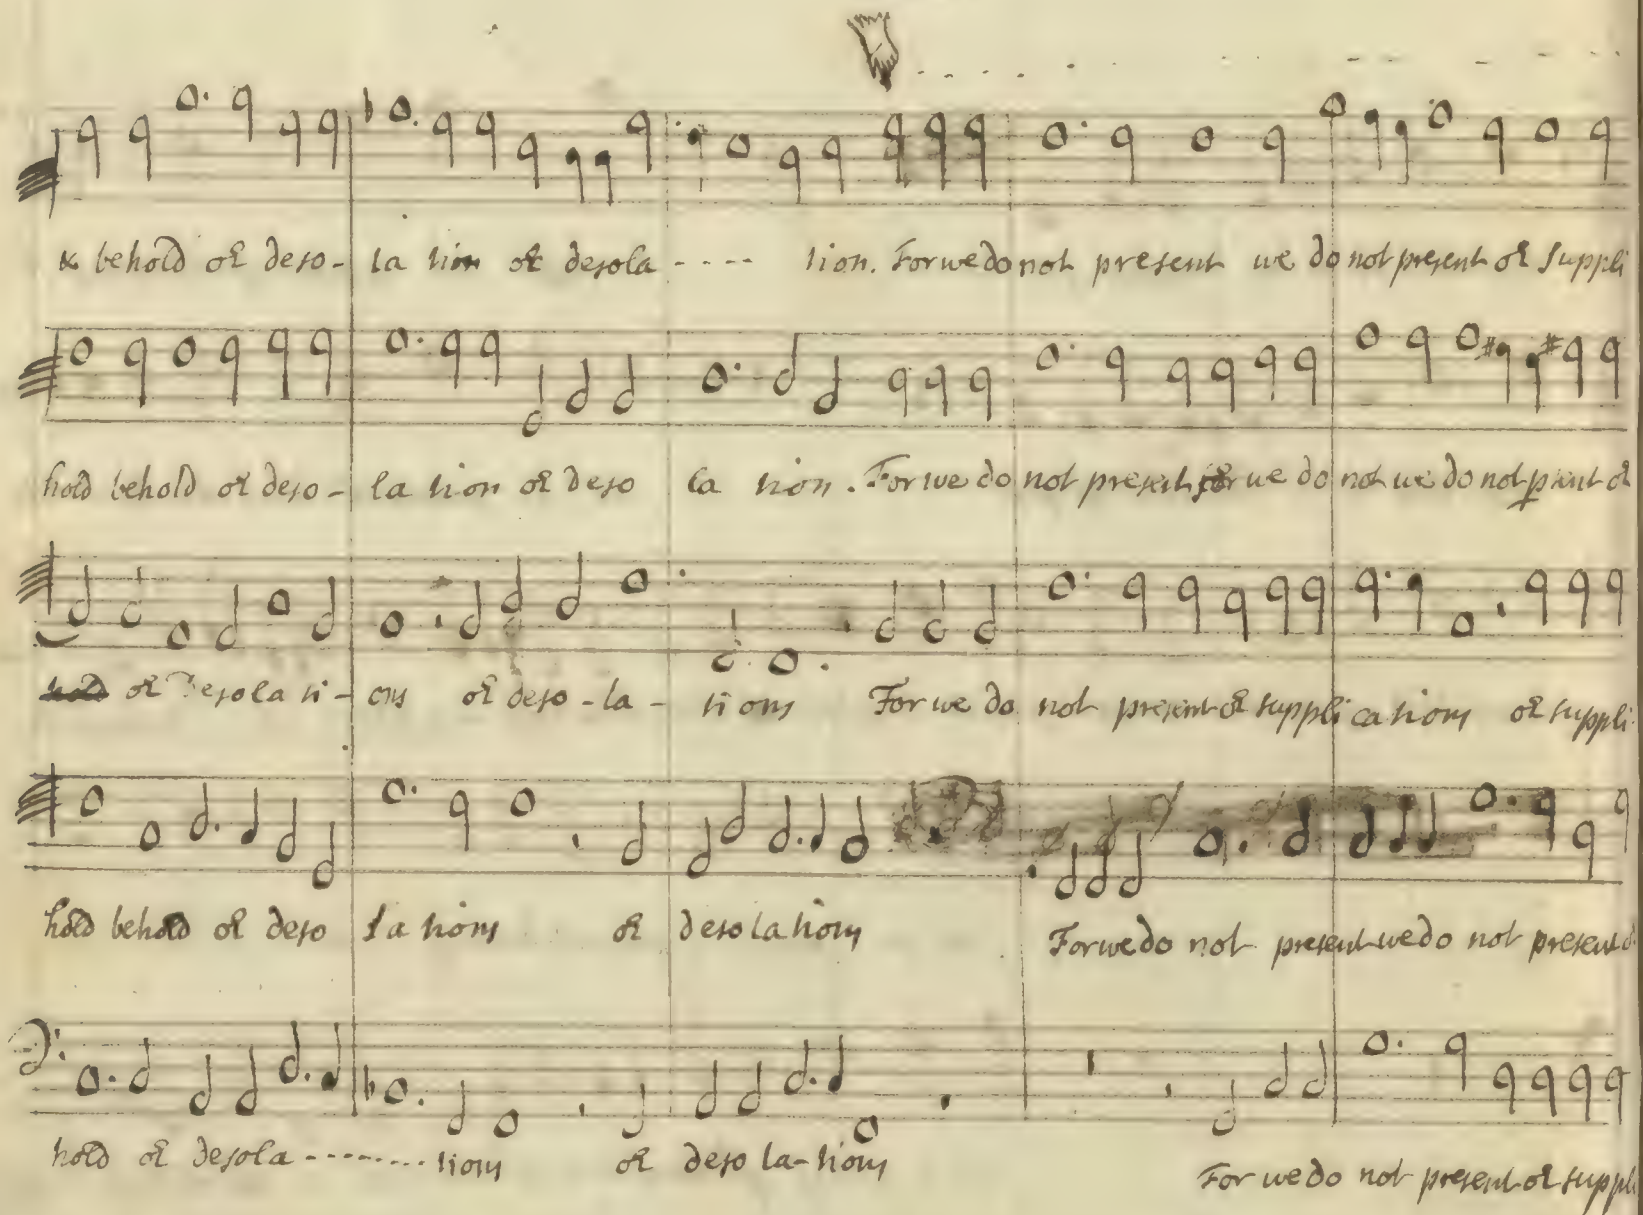 & behold oʳ deso- la tion oʳ desola ---- tion. For we do not present we do not present oʳ suppli
hold behold oʳ deso- la tion oʳ deso la tion. For we do not present for we do not we do not pͤsent oʳ
hold oʳ Desola ti- ons oʳ deso-la- tions For we do not present oʳ supplications oʳ suppli
hold behold oʳ deso lations oʳ desolations For we do not present we do not present oʳ
hold oʳ desola --------- tions oʳ desola-tions For we do not present oʳ suppli